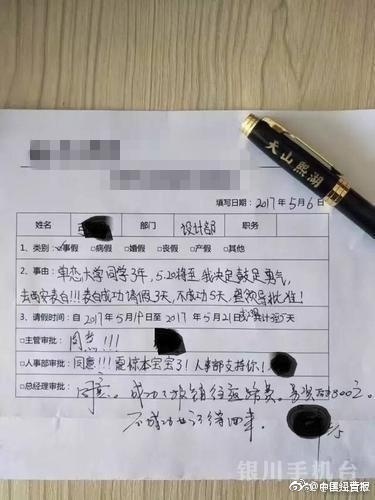 天山熙湖
填写日期：2017年5月6日
姓名 部门 设计部 职务
1、类别：☑事假 □病假 □婚假 □丧假 □产假 □其他
2、事由：单恋大学同学3年，5.20将至，我决定鼓足勇气，
去西安表白!!!表白成功请假3天，不成功5天，望领导批准！
3、请假时间：自2017年5月19日至2017年5月21日 共计 5天
□主管审批：同意!!!
□人事部审批：同意!!!震惊本宝宝了！人事部支持你！
□总经理审批：同意。成功了报销往返路费，另资助800元。
不成功也记得回来。
银川手机台
@中国经营报